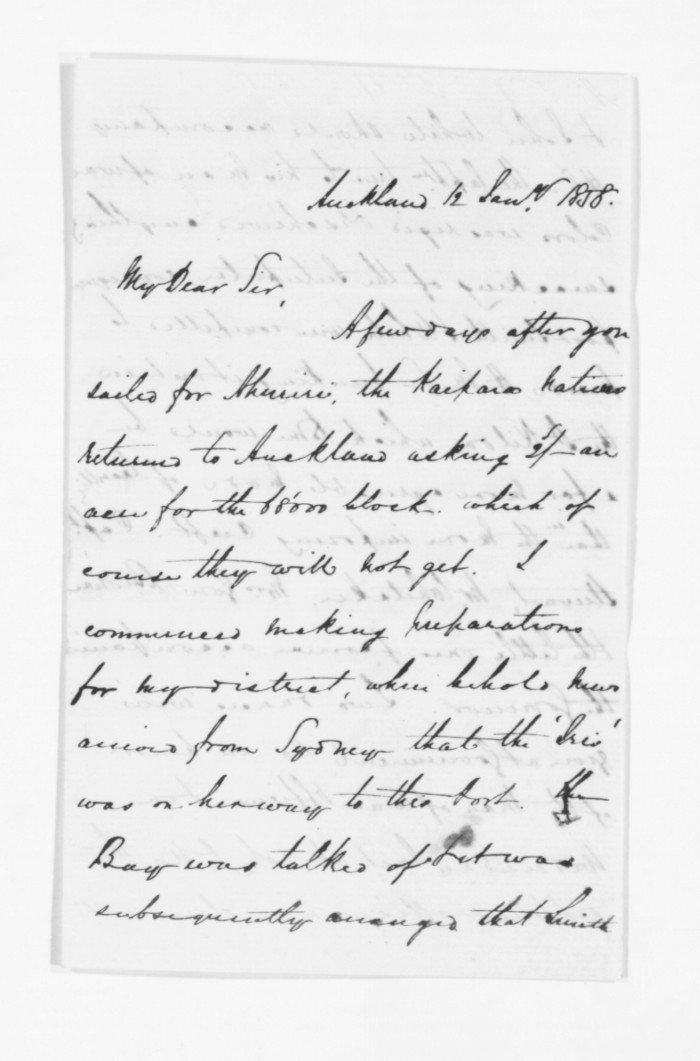 Auckland 12 Jany 1858.
My Dear Sir,
A few days after you
sailed for Ahuriri, the Kaipara Natives
returned to Auckland asking 2/- an
acre for the 68'000 block. which of
course they will not get. I
commenced making preparations
for my district, when behold news
arrived from Sydney that the 'Iris'
was on her way to this Port. The
Bay was talked of & it was
subsequently arranged that Smith